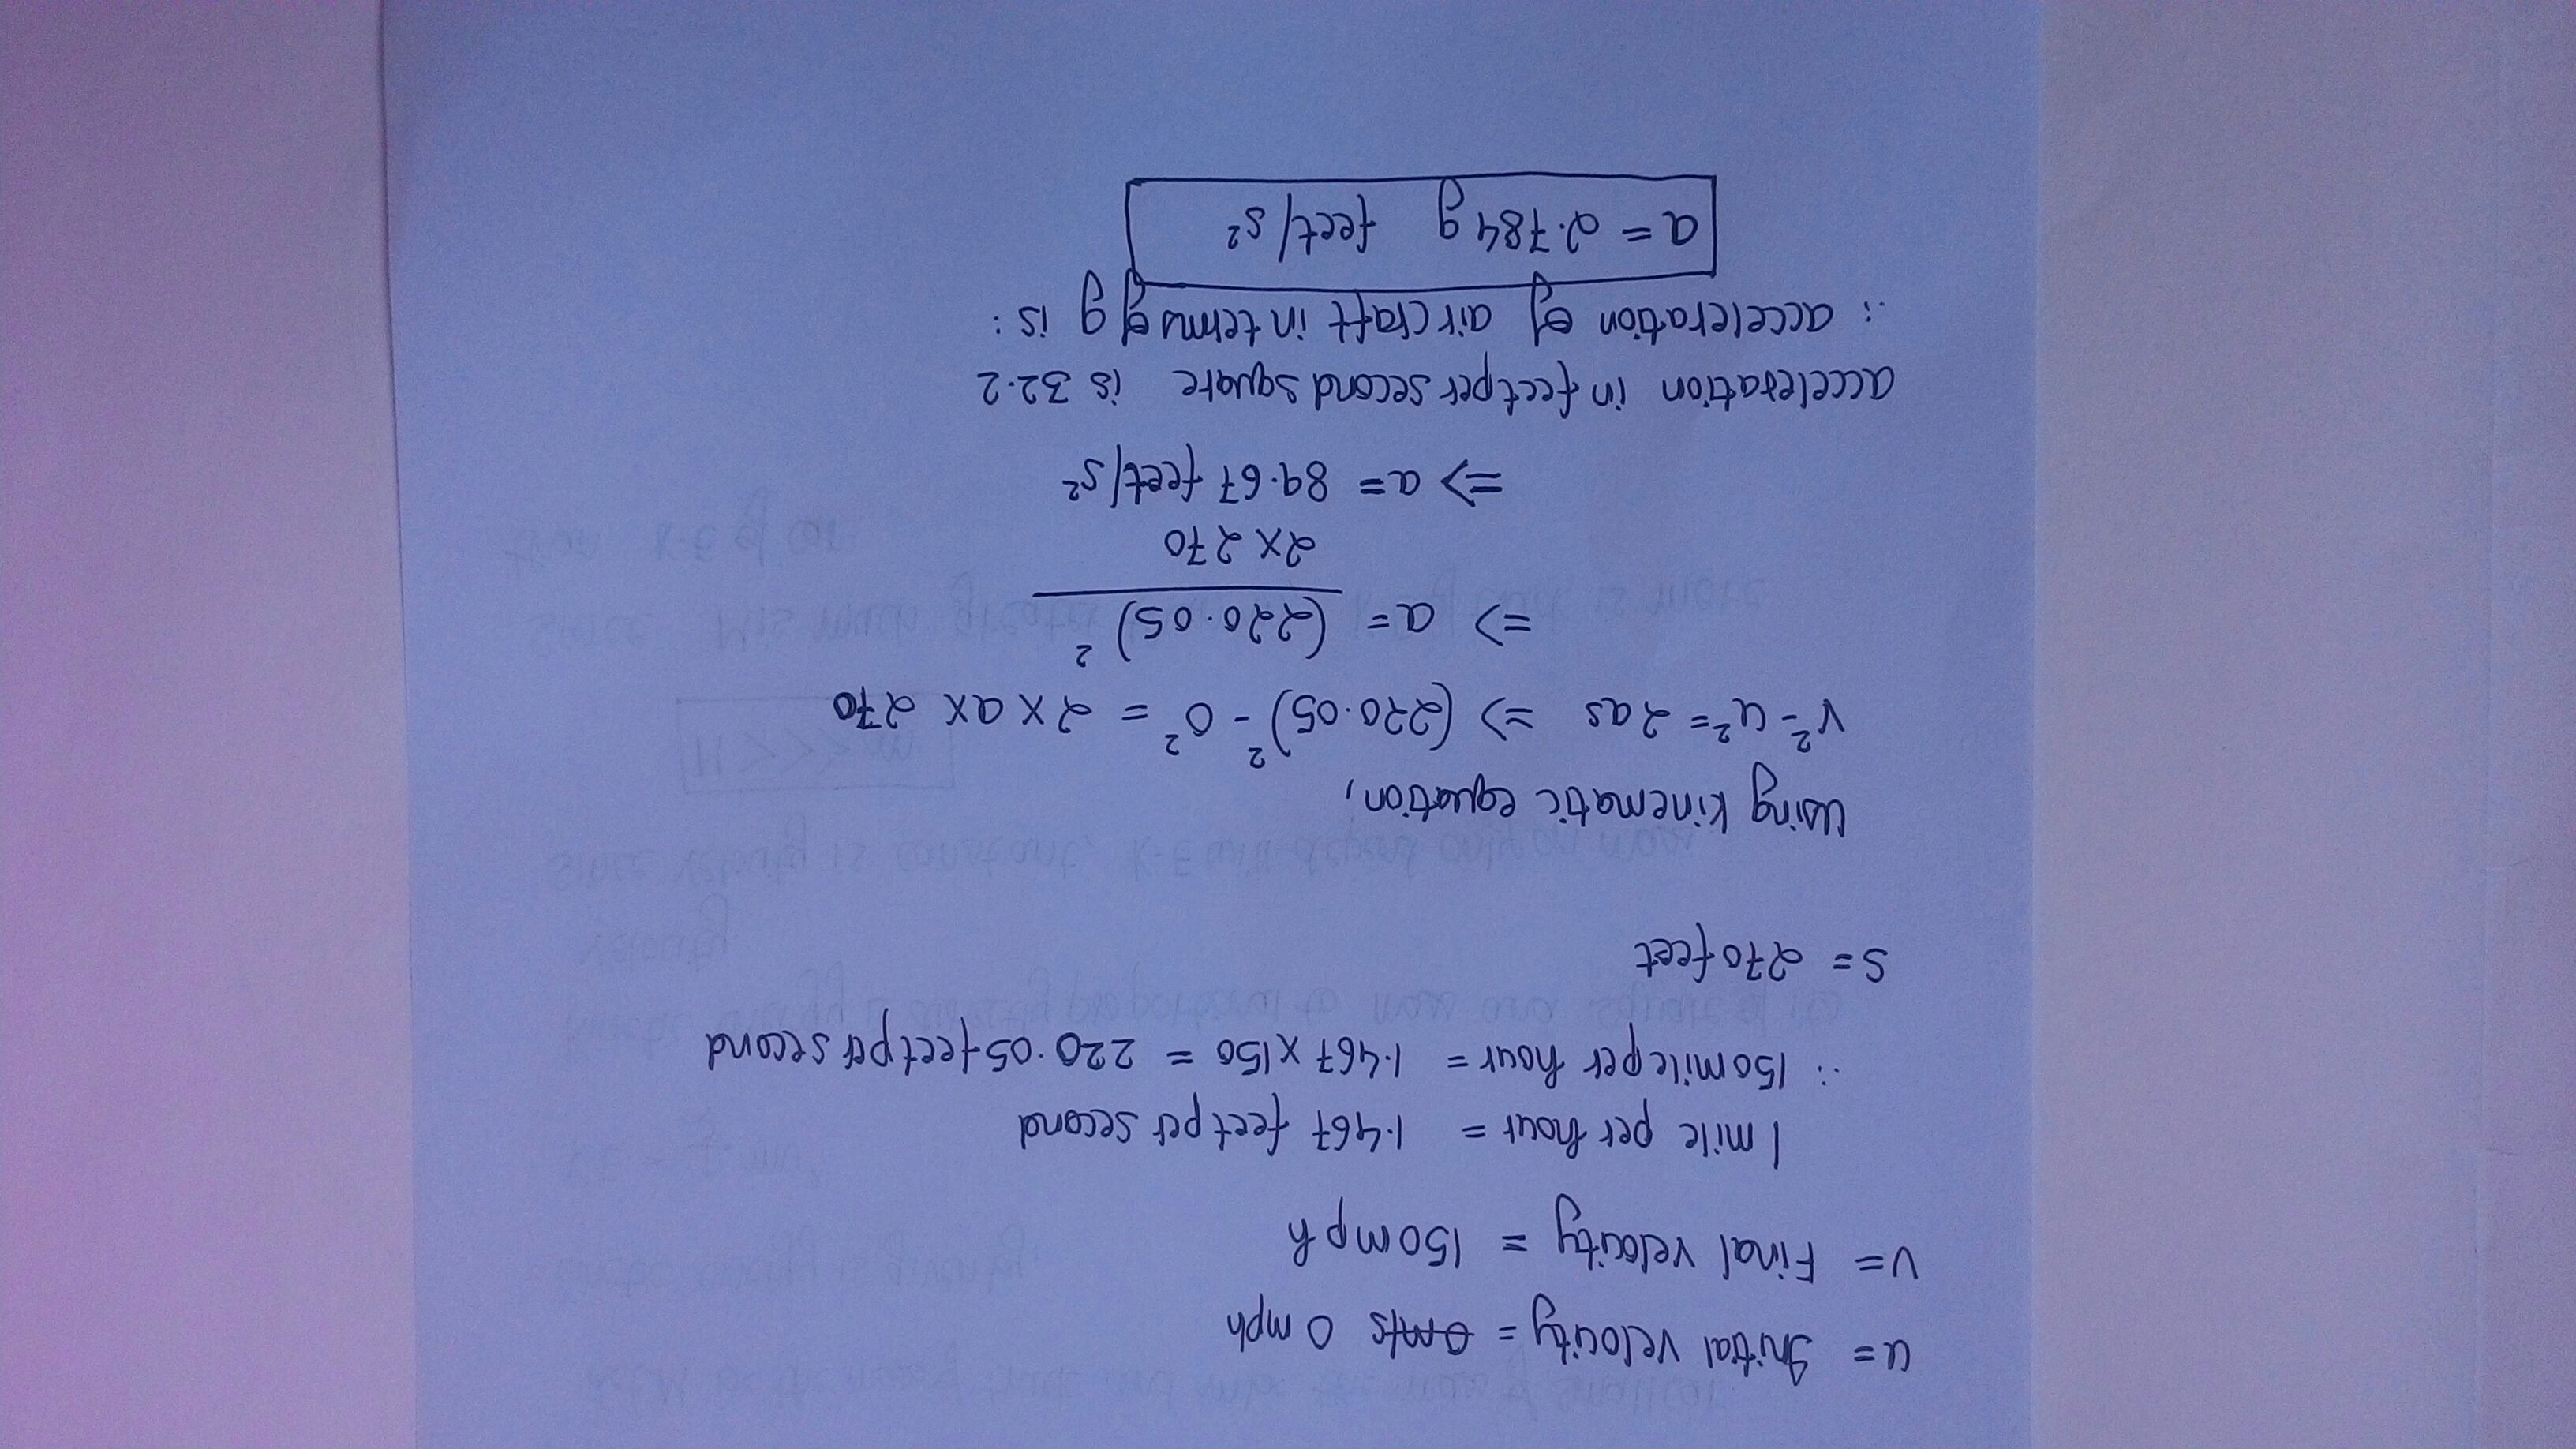 u = Initial velocity = 0m/s 0 mph
v = Final velocity = 150 mph
1 mile per hour = 1.467 feet per second
∴ 150 mile per hour = 1.467 x 150 = 220.05 feet per second
s = 270 feet
Using kinematic equation,
v² - u² = 2as => (220.05)² - 0² = 2 x a x 270
=> a = (220.05)²
2 x 270
=> a = 89.67 feet/s²
acceleration in feet per second square is 32.2
∴ acceleration of aircraft in terms of g is :
a = 2.784 g feet/s²